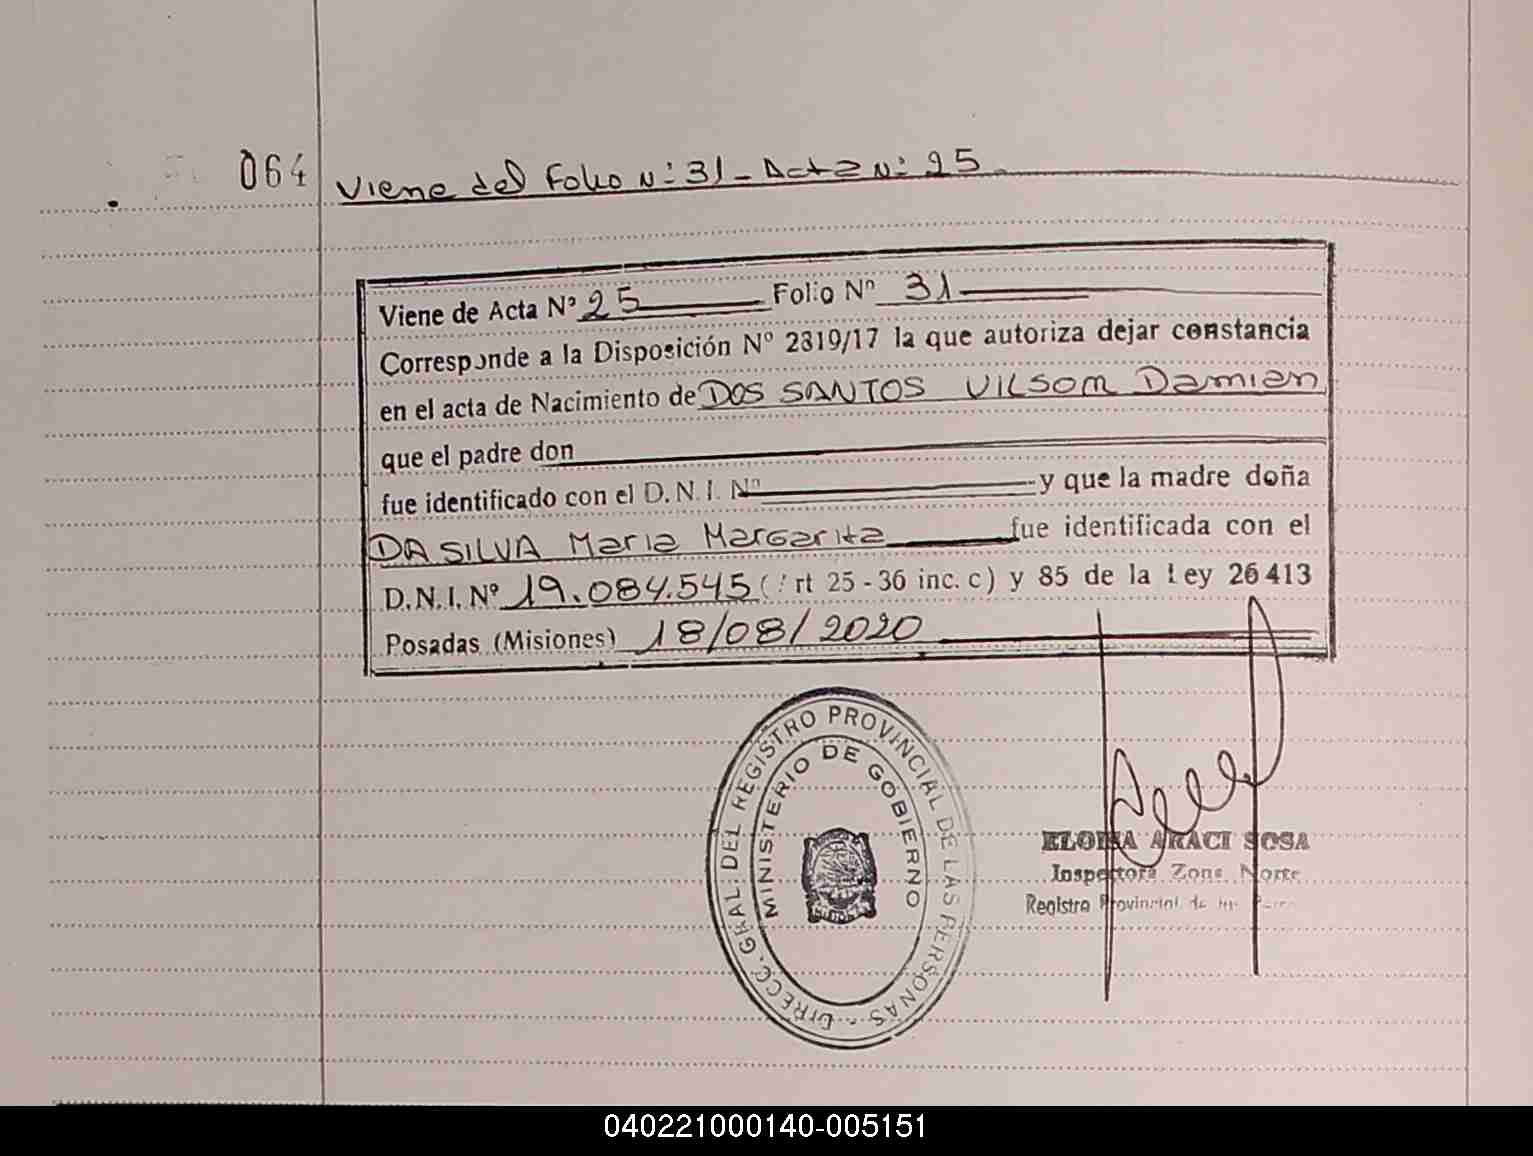 064
Viene del Folio N: 31 - Acta N: 25.
Viene de Acta Nº 25 Folio Nº 31
Corresponde a la Disposición Nº 2319/17 la que autoriza dejar constancia
en el acta de Nacimiento de DOS SANTOS VILSOM Damian
que el padre don
fue identificado con el D.N.I. Nº y que la madre doña
DA SILVA Maria Margarita fue identificada con el
D.N.I. Nº 19.084.545 (Art 25 - 36 inc. c) y 85 de la Ley 26413
Posadas (Misiones) 18/08/2020
DIRECC. GRAL. DEL REGISTRO PROVINCIAL DE LAS PERSONAS
MINISTERIO DE GOBIERNO
ELOISA ARACI SOSA
Inspectora Zona Norte
Registro Provincial de las
040221000140-005151